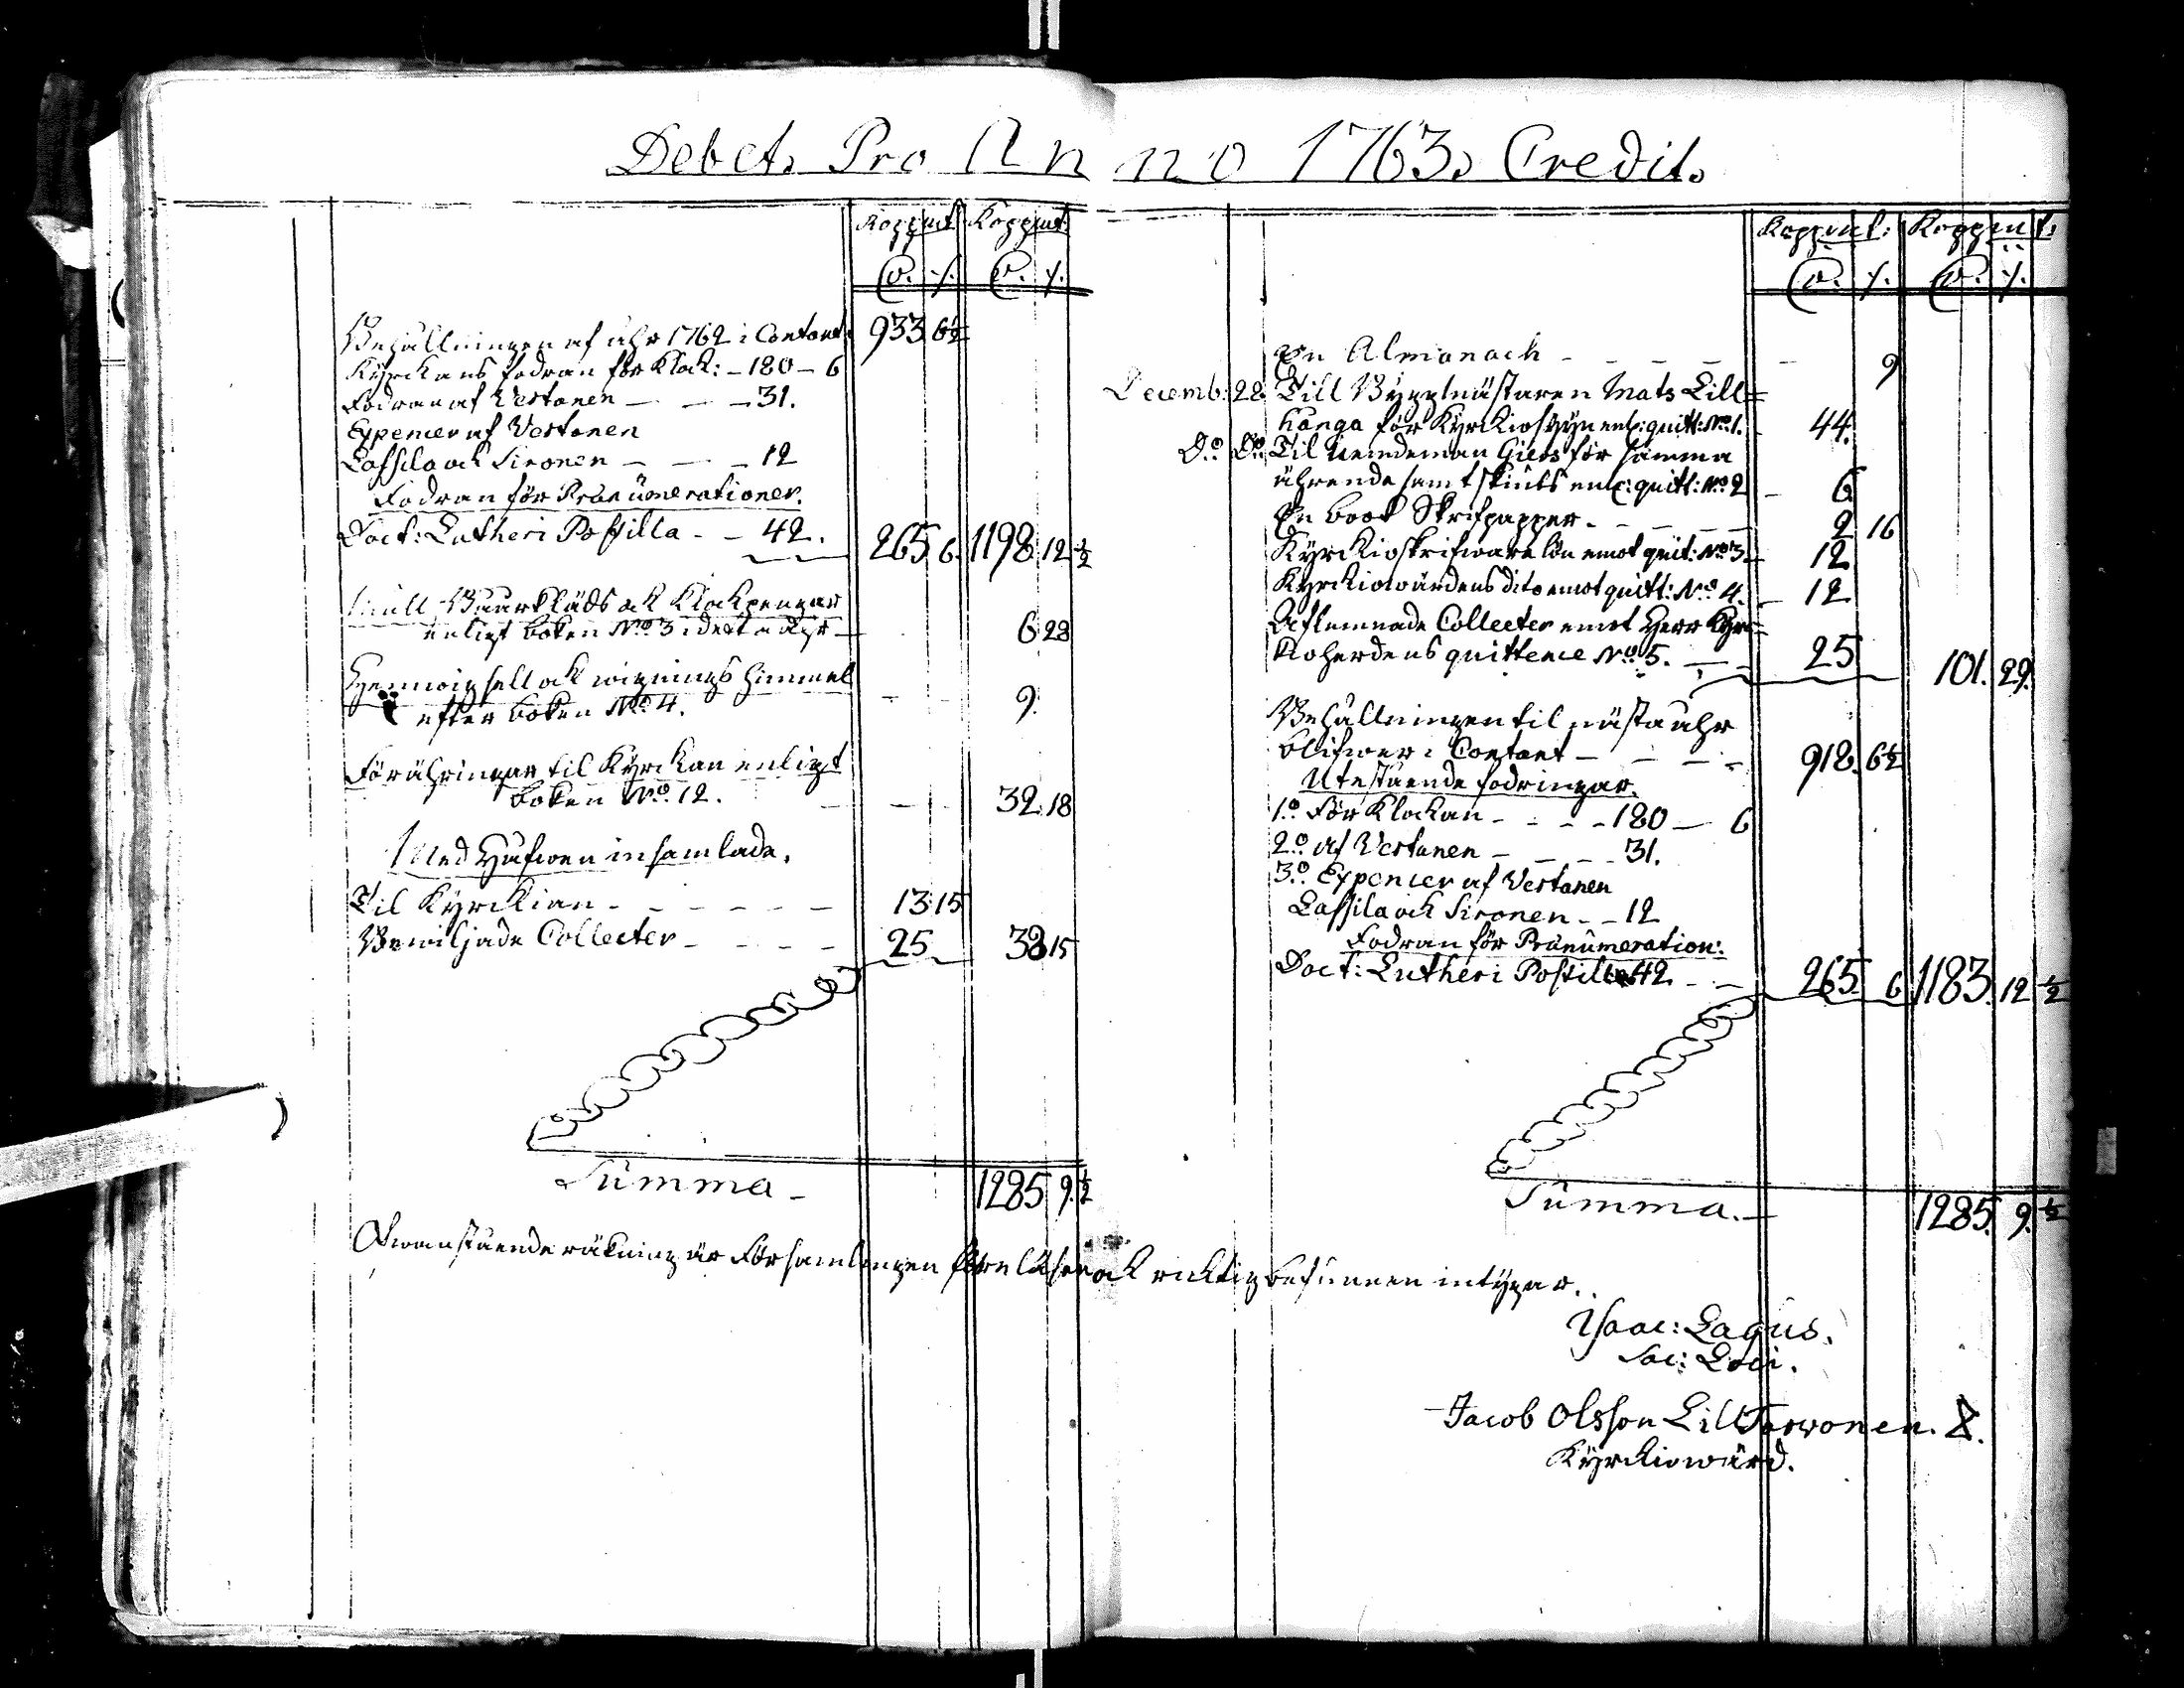 Debet. Pro Anno 1763. Credit.
Koppmt. Koppmt.
D. /. D. /.
Behållningen af åhr 1762 i Contant 933 6½
Kyrckans fodran för Klock: – 180 – 6
Fodran af Vestanen – – – 31.
Expencer af Vestanen
Lassila och Sironen – – – 12
Fodran för Prænumerationer.
Doct: Lutheri Postilla – – 42. 265 6. 1198 12 ½
Mull Baarkläds och Klockpengar
enligt boken No. 3 6 28
efter boken No. 4. 9.
Föräringar til Kyrckan enligt
boken No. 12. 32. 18
Med Håfwen insamlade.
Til Kyrckian – – – – – – 13. 15
Bewiljade Collecter – – – – 25 38 15
Summa – 1285 9. ½
Koppmt: Koppmt:
D. /. D. /.
En Almanach – – – – – 9
Decemb: 28. Till Byggmästaren Mats Lill=
hanga för Kyrckiosyyn enl: quitt: No. 1. 44.
Do. Do. Til Nemdeman Giers för samma
ährende samt skiuts enl: quitt: No. 2 6
En book Skrifpapper. – – – 2 16
Kyrckioskrifware lön emot quit: No. 3. 12
Kyrckiowärdens dito emot quitt: No. 4. 12
Aflemnade Collecter emot Herr Kyrc=
kioherdens quittence No. 5. 25 101. 29.
Behållningen til nästa åhr
blifwer i Contant – – – – 918. 6½
Utestående fodringar.
1o. För Klockan – – – – 180 – 6
2o. Af Vestanen – – – – 31.
3o. Expencer af Vestanen
Lassila och Sironen – – 12
Fodran för Prænumeration:
Doct: Lutheri Postilla 42 – – 265. 6 1183. 12 ½
Summa. – 1285. 9. ½
Ofwanstående räkning är Församlingen föreläsen och richtig befunnen intygar.
Isaac: Lagus.
Sac: Loci.
Jacob Olsson Lill Torvonen.
Kyrckiowärd.